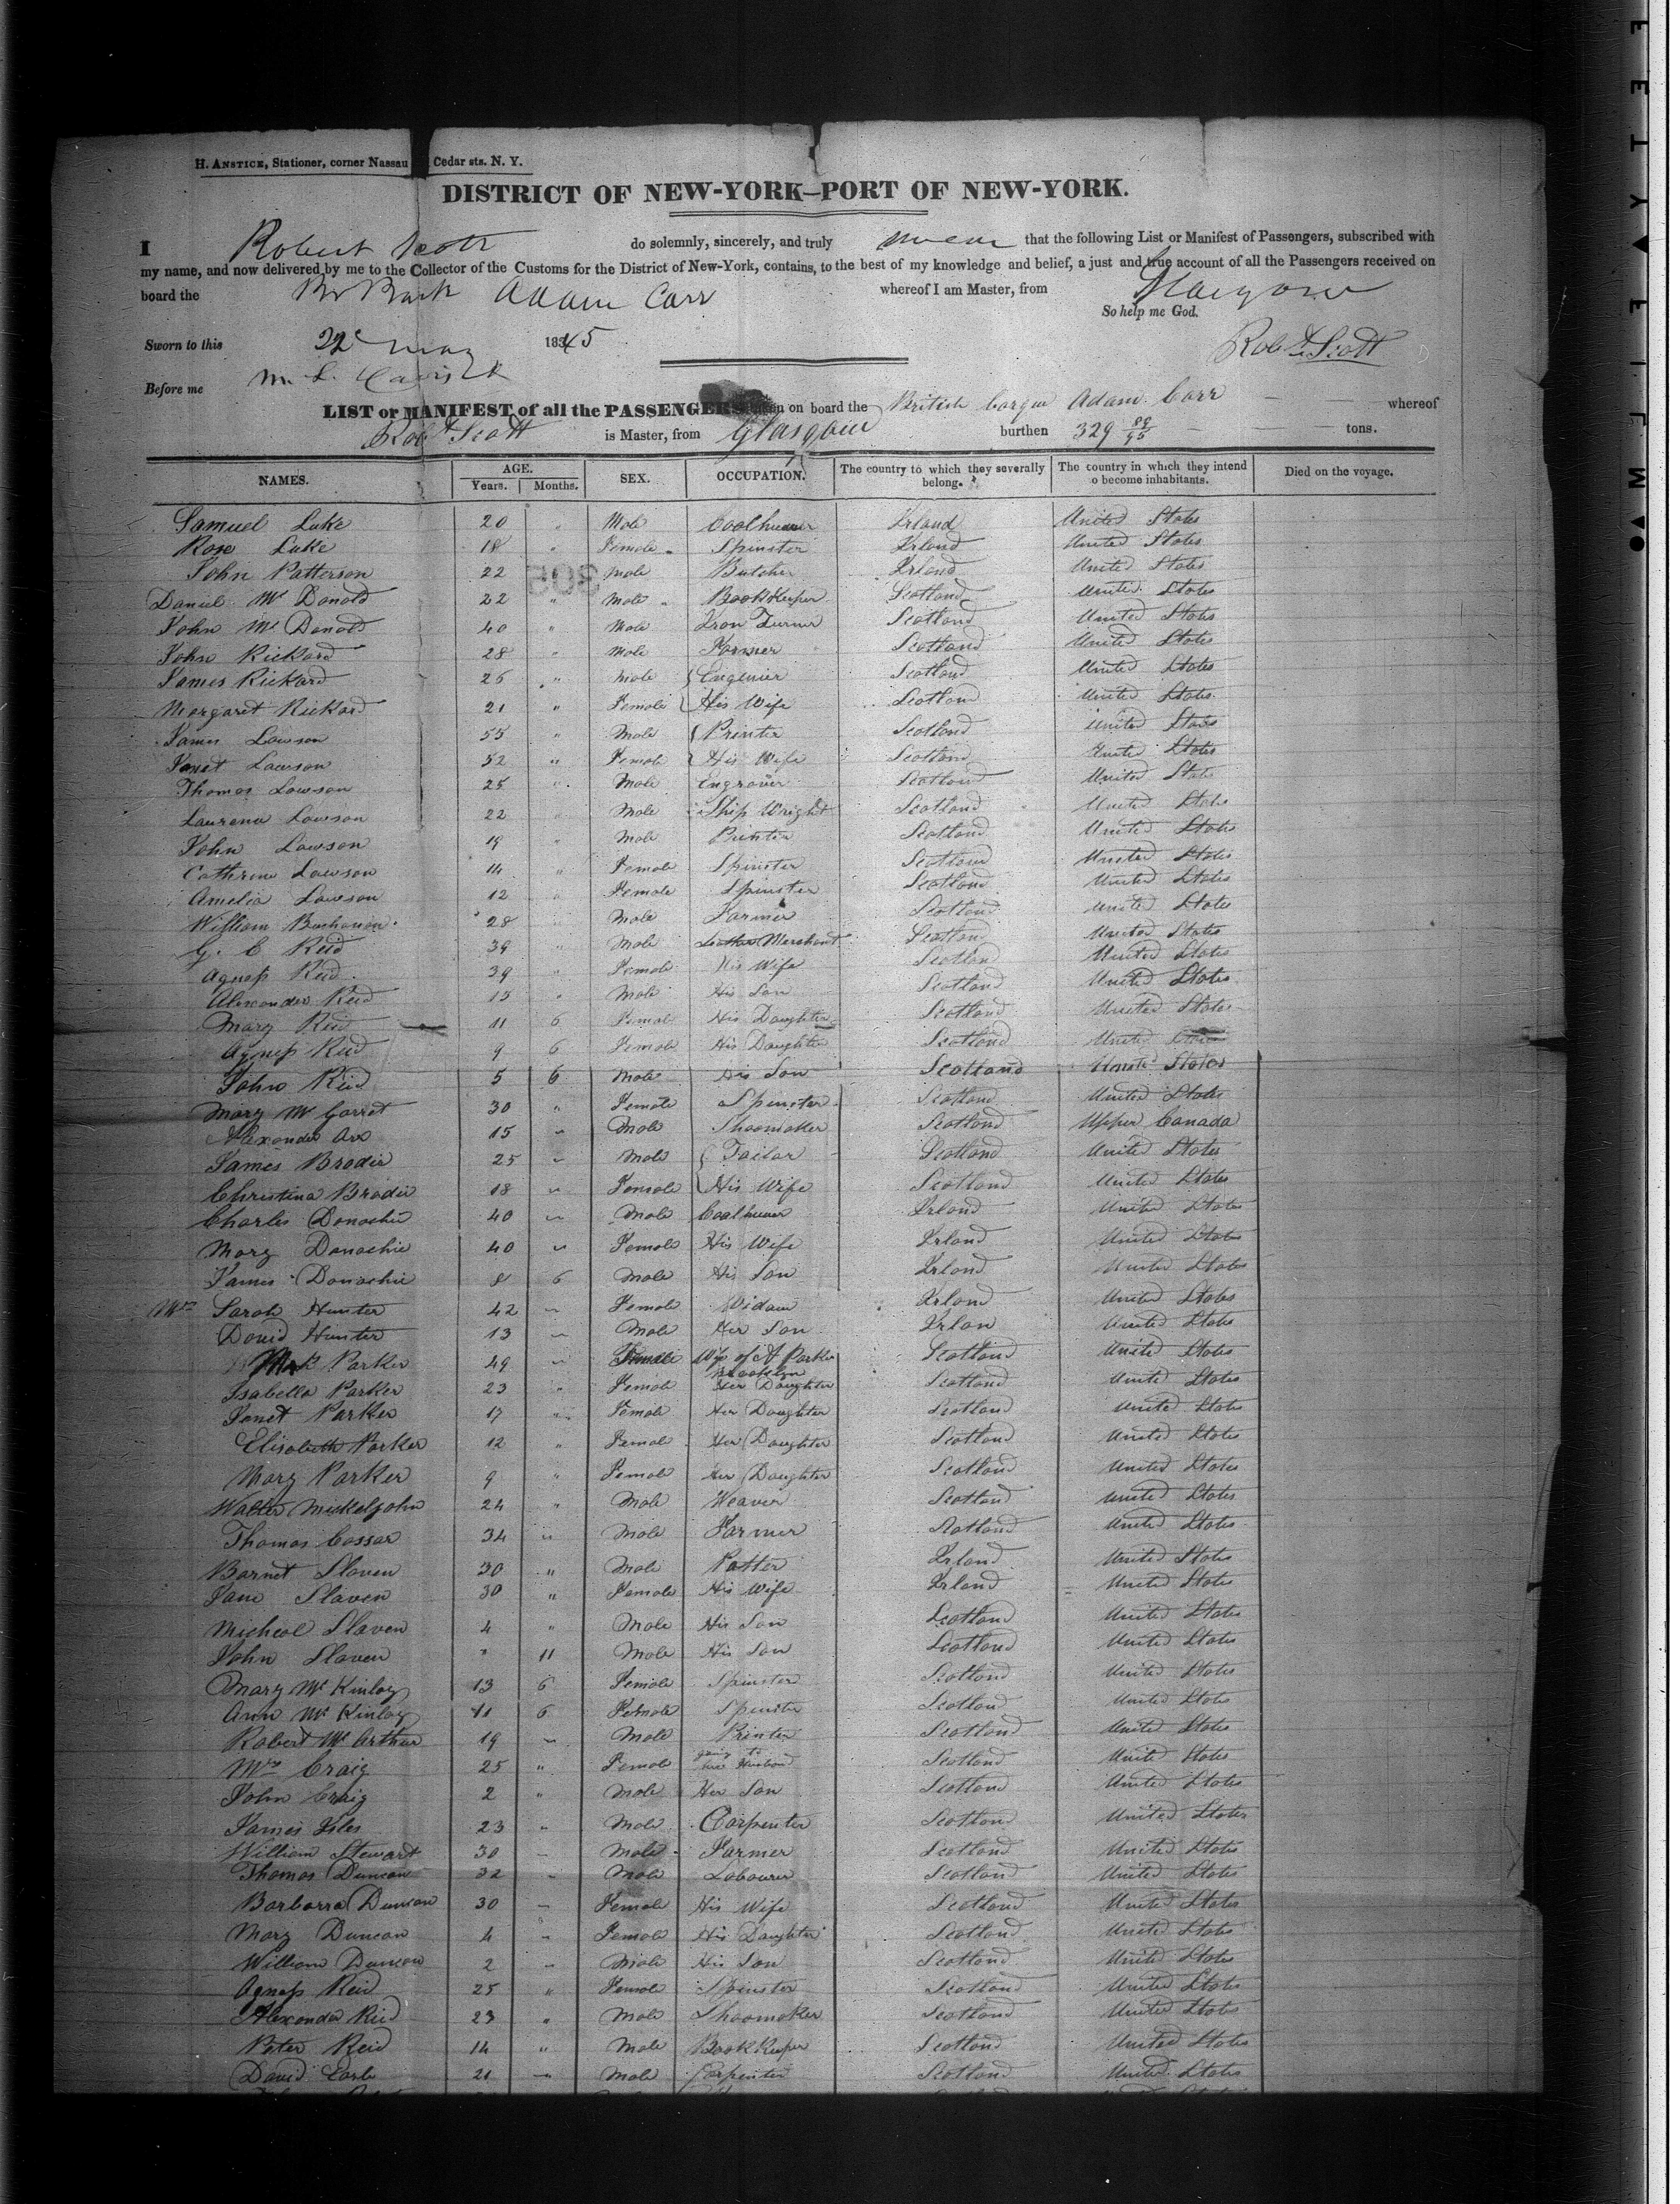 H. ANSTICE, Stationer, corner Nassau Cedar sts. N. Y.
DISTRICT OF NEW-YORK—PORT OF NEW-YORK.
I Robert Scott do solemnly, sincerely, and truly swear that the following List or Manifest of Passengers, subscribed with
my name, and now delivered by me to the Collector of the Customs for the District of New-York, contains, to the best of my knowledge and belief, a just and true account of all the Passengers received on
board the Br Bark Adam Carr whereof I am Master, from Glasgow
So help me God.
Sworn to this 22 May 1845
Robt Scott
Before me
LIST or MANIFEST of all the PASSENGERS taken on board the British barque Adam Carr whereof
Robt Scott is Master, from Glasgow burthen 329 tons.
NAMES. AGE. SEX. OCCUPATION. The country to which they severally belong. The country in which they intend o become inhabitants. Died on the voyage.
Years. Months.
Samuel Luke 20 " Male Coalhewer Irland United States
Rose Luke 18 " Female Spinster Irland United States
John Patterson 22 Male Butcher Irland United States
305
Daniel Mc Donald 22 " Male Book Keeper Scotland United States
John Mc Donald 40 " Male Iron Turner Scotland United States
John Rickard 28 " Male Farmer Scotland United States
James Rickard 26 " Male Enginier Scotland United States
Margaret Rickard 21 " Female His Wife Scotland United States
James Lawson 55 " Male Printer Scotland United States
Janet Lawson 52 " Female His Wife Scotland United States
Thomas Lawson 25 " Male Engraver Scotland United States
Laurena Lawson 22 " Male Ship Wright Scotland United States
John Lawson 19 " Male Printer Scotland United States
Cathrine Lawson 14 " Female Spinster Scotland United States
Amelia Lawson 12 " Female Spinster Scotland United States
William Buchanan 28 " Male Farmer Scotland United States
G. C Reid 39 " Male Leather Merchant Scotland United States
Agness Reid 39 " Female His Wife Scotland United States
Alexander Reid 15 " Male His Son Scotland United States
Mary Reid 11 6 Female His Daughter Scotland United States
Agness Reid 9 6 Female His Daughter Scotland United States
John Reid 5 6 Male His Son Scotland United States
Mary Mc Garret 30 " Female Spinster Scotland United States
Alexander 15 " Male Shoomaker Scotland Upper Canada
James Brodie 25 " Male Tailor Scotland United States
Christina Brodie 18 " Female His Wife Scotland United States
Charles Donachie 40 " Male Coalhewer Irland United States
Mary Donachie 40 " Female His Wife Irland United States
James Donachie 8 6 Male His Son Irland United States
Mrs Sarah Hunter 42 " Female Widaw Irland United States
David Hunter 13 " Male Her Son Irlan United States
Parker 49 " Female Wife of A Parker Brooklyn Scotland United States
Isabella Parker 23 " Female Her Daughter Scotland United States
Janet Parker 17 " Female Her Daughter Scotland United States
Elisabeth Parker 12 " Female Her Daughter Scotland United States
Mary Parker 9 " Female Her Daughter Scotland United States
Walter Mickeljohn 24 " Male Weaver Scotland United States
Thomas Cossar 34 " Male Farmer Scotland United States
Barnet Slaven 30 " Male Potter Irland United States
Jane Slaven 30 " Female His Wife Irland United States
Micheal Slaven 4 " Male His Son Scotland United States
John Slaven " 11 Male His Son Scotland United States
Mary Mc Kinlay 13 6 Female Spinster Scotland United States
Ann Mc Kinlay 11 6 Female Spinster Scotland United States
Robert Mc Arthur 19 " Male Printer Scotland United States
Mrs Craig 25 " Female going to her Husband Scotland United States
John Craig 2 " Male Her Son Scotland United States
James Isles 23 " Male Carpenter Scotland United States
William Stewart 30 " Male Farmer Scotland United States
Thomas Duncan 32 " Male Labourer Scotland United States
Barbarra Duncan 30 " Female His Wife Scotland United States
Mary Duncan 4 " Female His Daughter Scotland United States
William Duncan 2 " Male His Son Scotland United States
Agness Reid 25 " Female Spinster Scotland United States
Alexander Reid 23 " Male Shoomaker Scotland United States
Peter Reid 14 " Male Book Keeper Scotland United States
David 21 " Male Carpenter Scotland United States